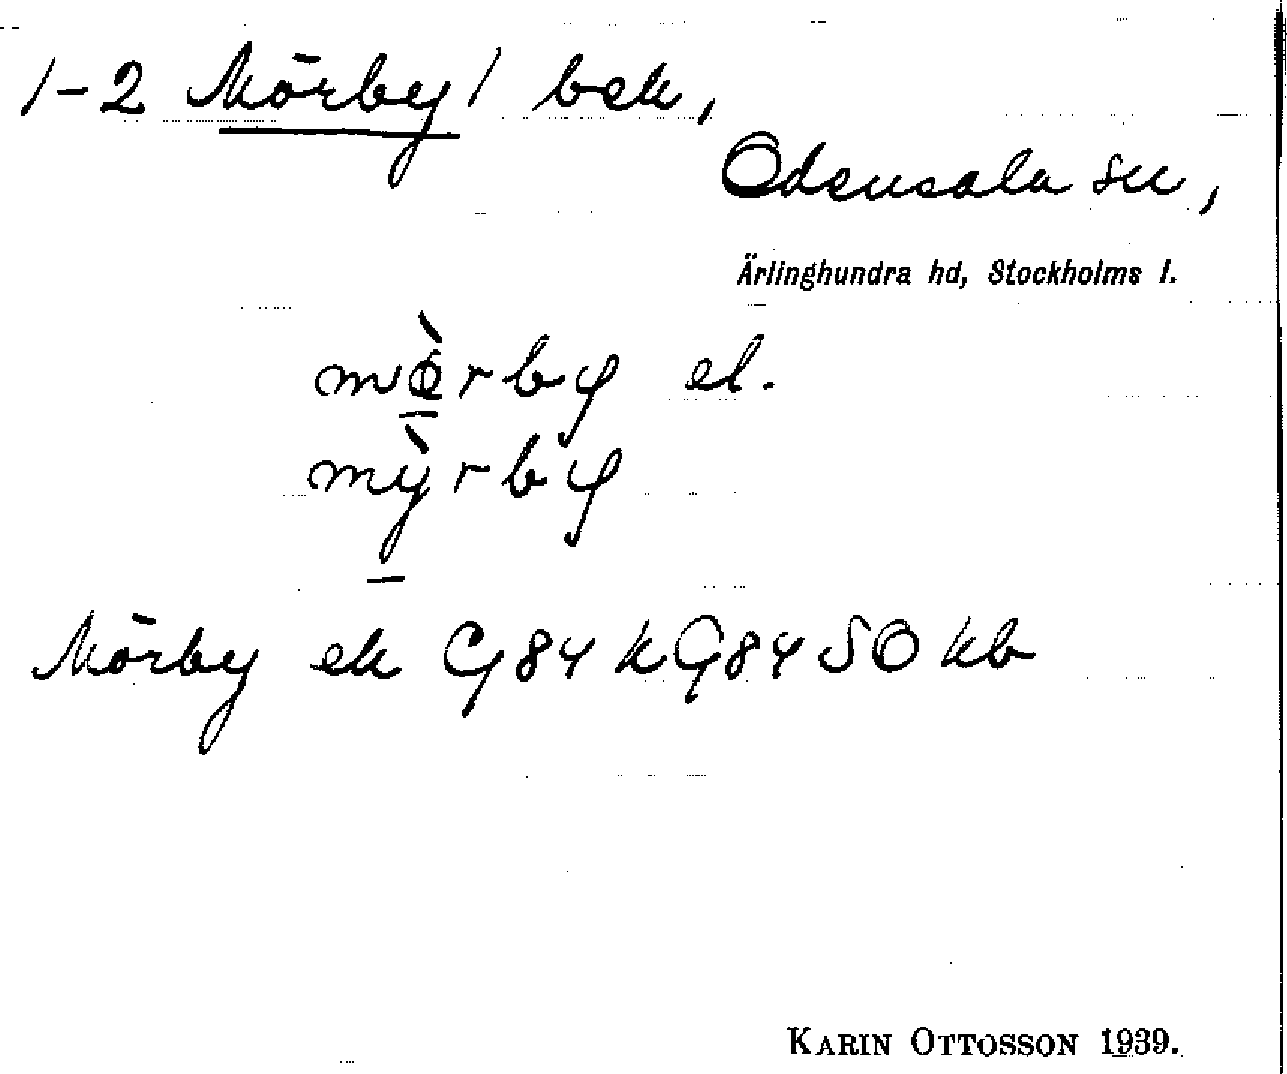 1-2 Mörby / bek,
Odensala sn,
Ärlinghundra hd, Stockholms l.
mø̀rby el.
mỳrby
Mörby ek G 84 k G 84 SO kb
KARIN OTTOSSON 1939.